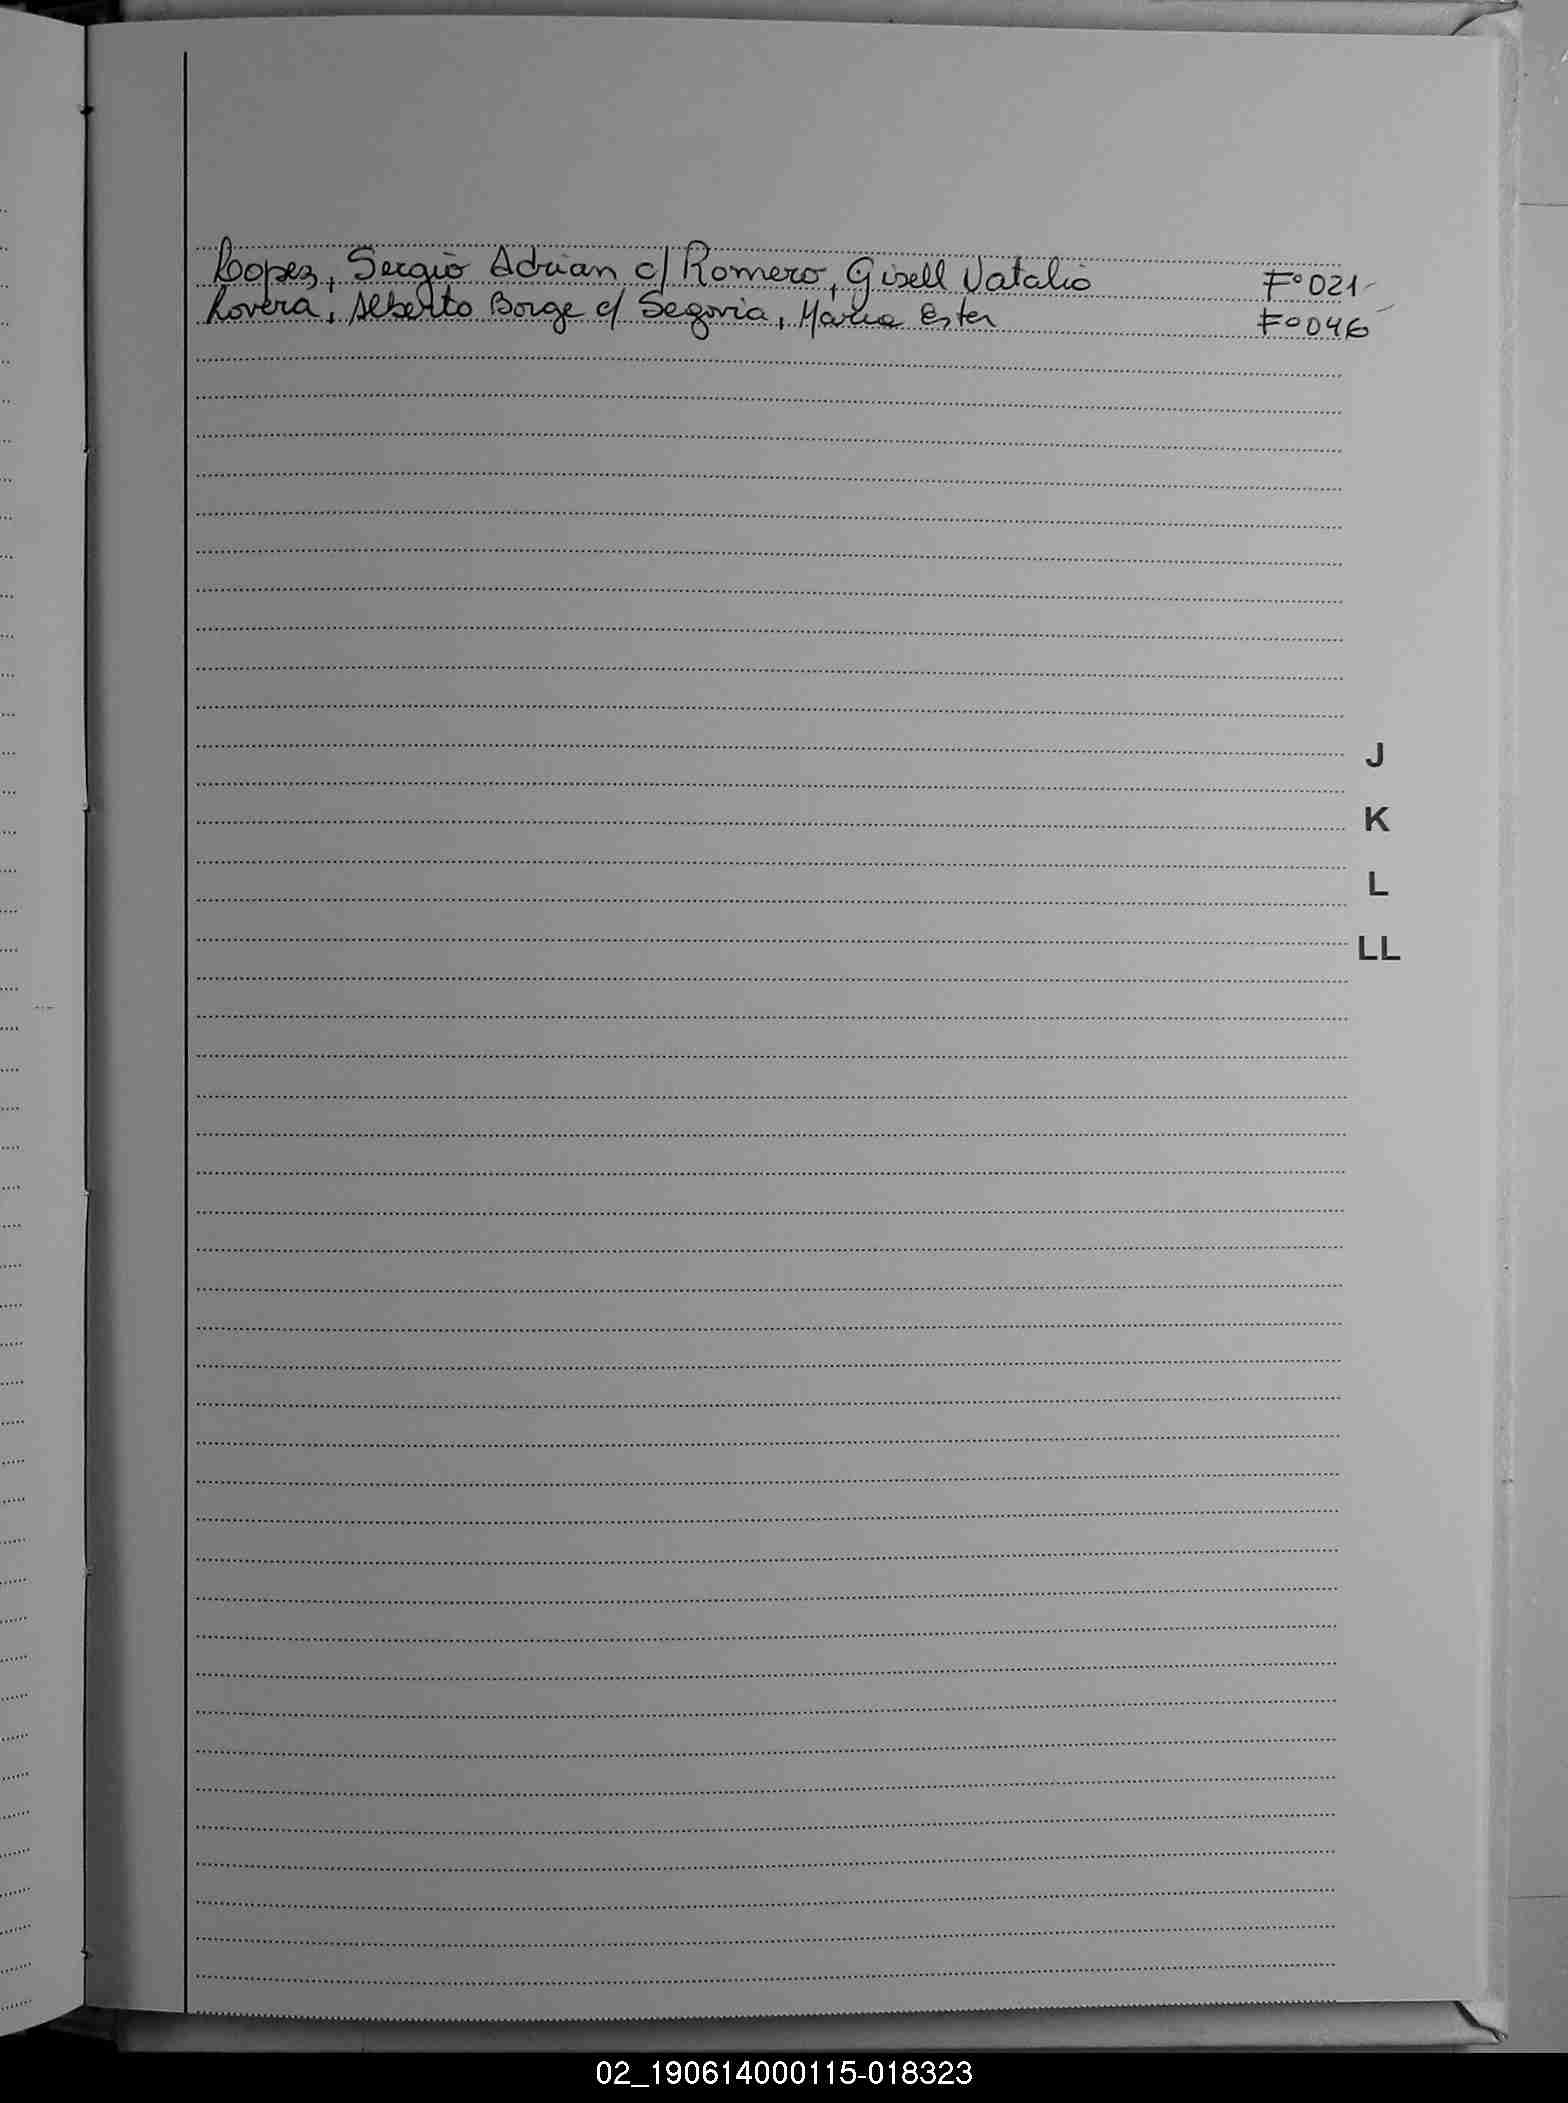 Lopez, Sergio Adrian c/ Romero, Gisell Natalia Fº 021
Lovera, Alberto Borge c/ Segovia, Maria Ester Fº 046
J
K
L
LL
02_190614000115-018323